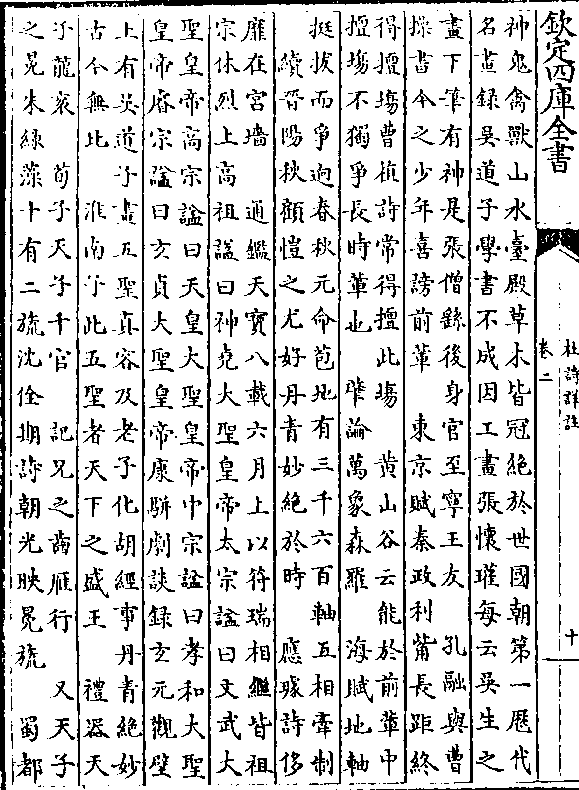 欽定四庫全書
杜詩詳註
卷二
十
神鬼禽獸山水臺殿草木皆冠絶於世國朝第一歷代
名畫録吳道子學書不成因工畫張懷瓘每云吳生之
畫下筆有神是張僧繇後身官至寧王友　孔融與曹
操書今之少年喜謗前輩　東京賦秦政利觜長距終
得擅塲曹植詩常得擅此塲　黄山谷云能於前輩中
擅塲不獨爭長時輩也　肇論萬象森羅　海賦地軸
挺拔而爭迴春秋元命苞地有三千六百軸互相牽制
續晉陽秋顧愷之尤好丹青妙絶於時　應璩詩侈
靡在宮墻　通鑑天寶八載六月上以符瑞相繼皆祖
宗休烈上高祖諡曰神堯大聖皇帝太宗諡曰文武大
聖皇帝高宗諡曰天皇大聖皇帝中宗諡曰孝和大聖
皇帝睿宗諡曰玄貞大聖皇帝康駢劇談録玄元觀壁
上有吳道子畫五聖真容及老子化胡經事丹青絶妙
古今無比　淮南子此五聖者天下之盛王　禮器天
子龍衮　荀子天子千官　記兄之齒雁行　又天子
之冕朱緑藻十有二旒沈佺期詩朝光映冕旒　蜀都